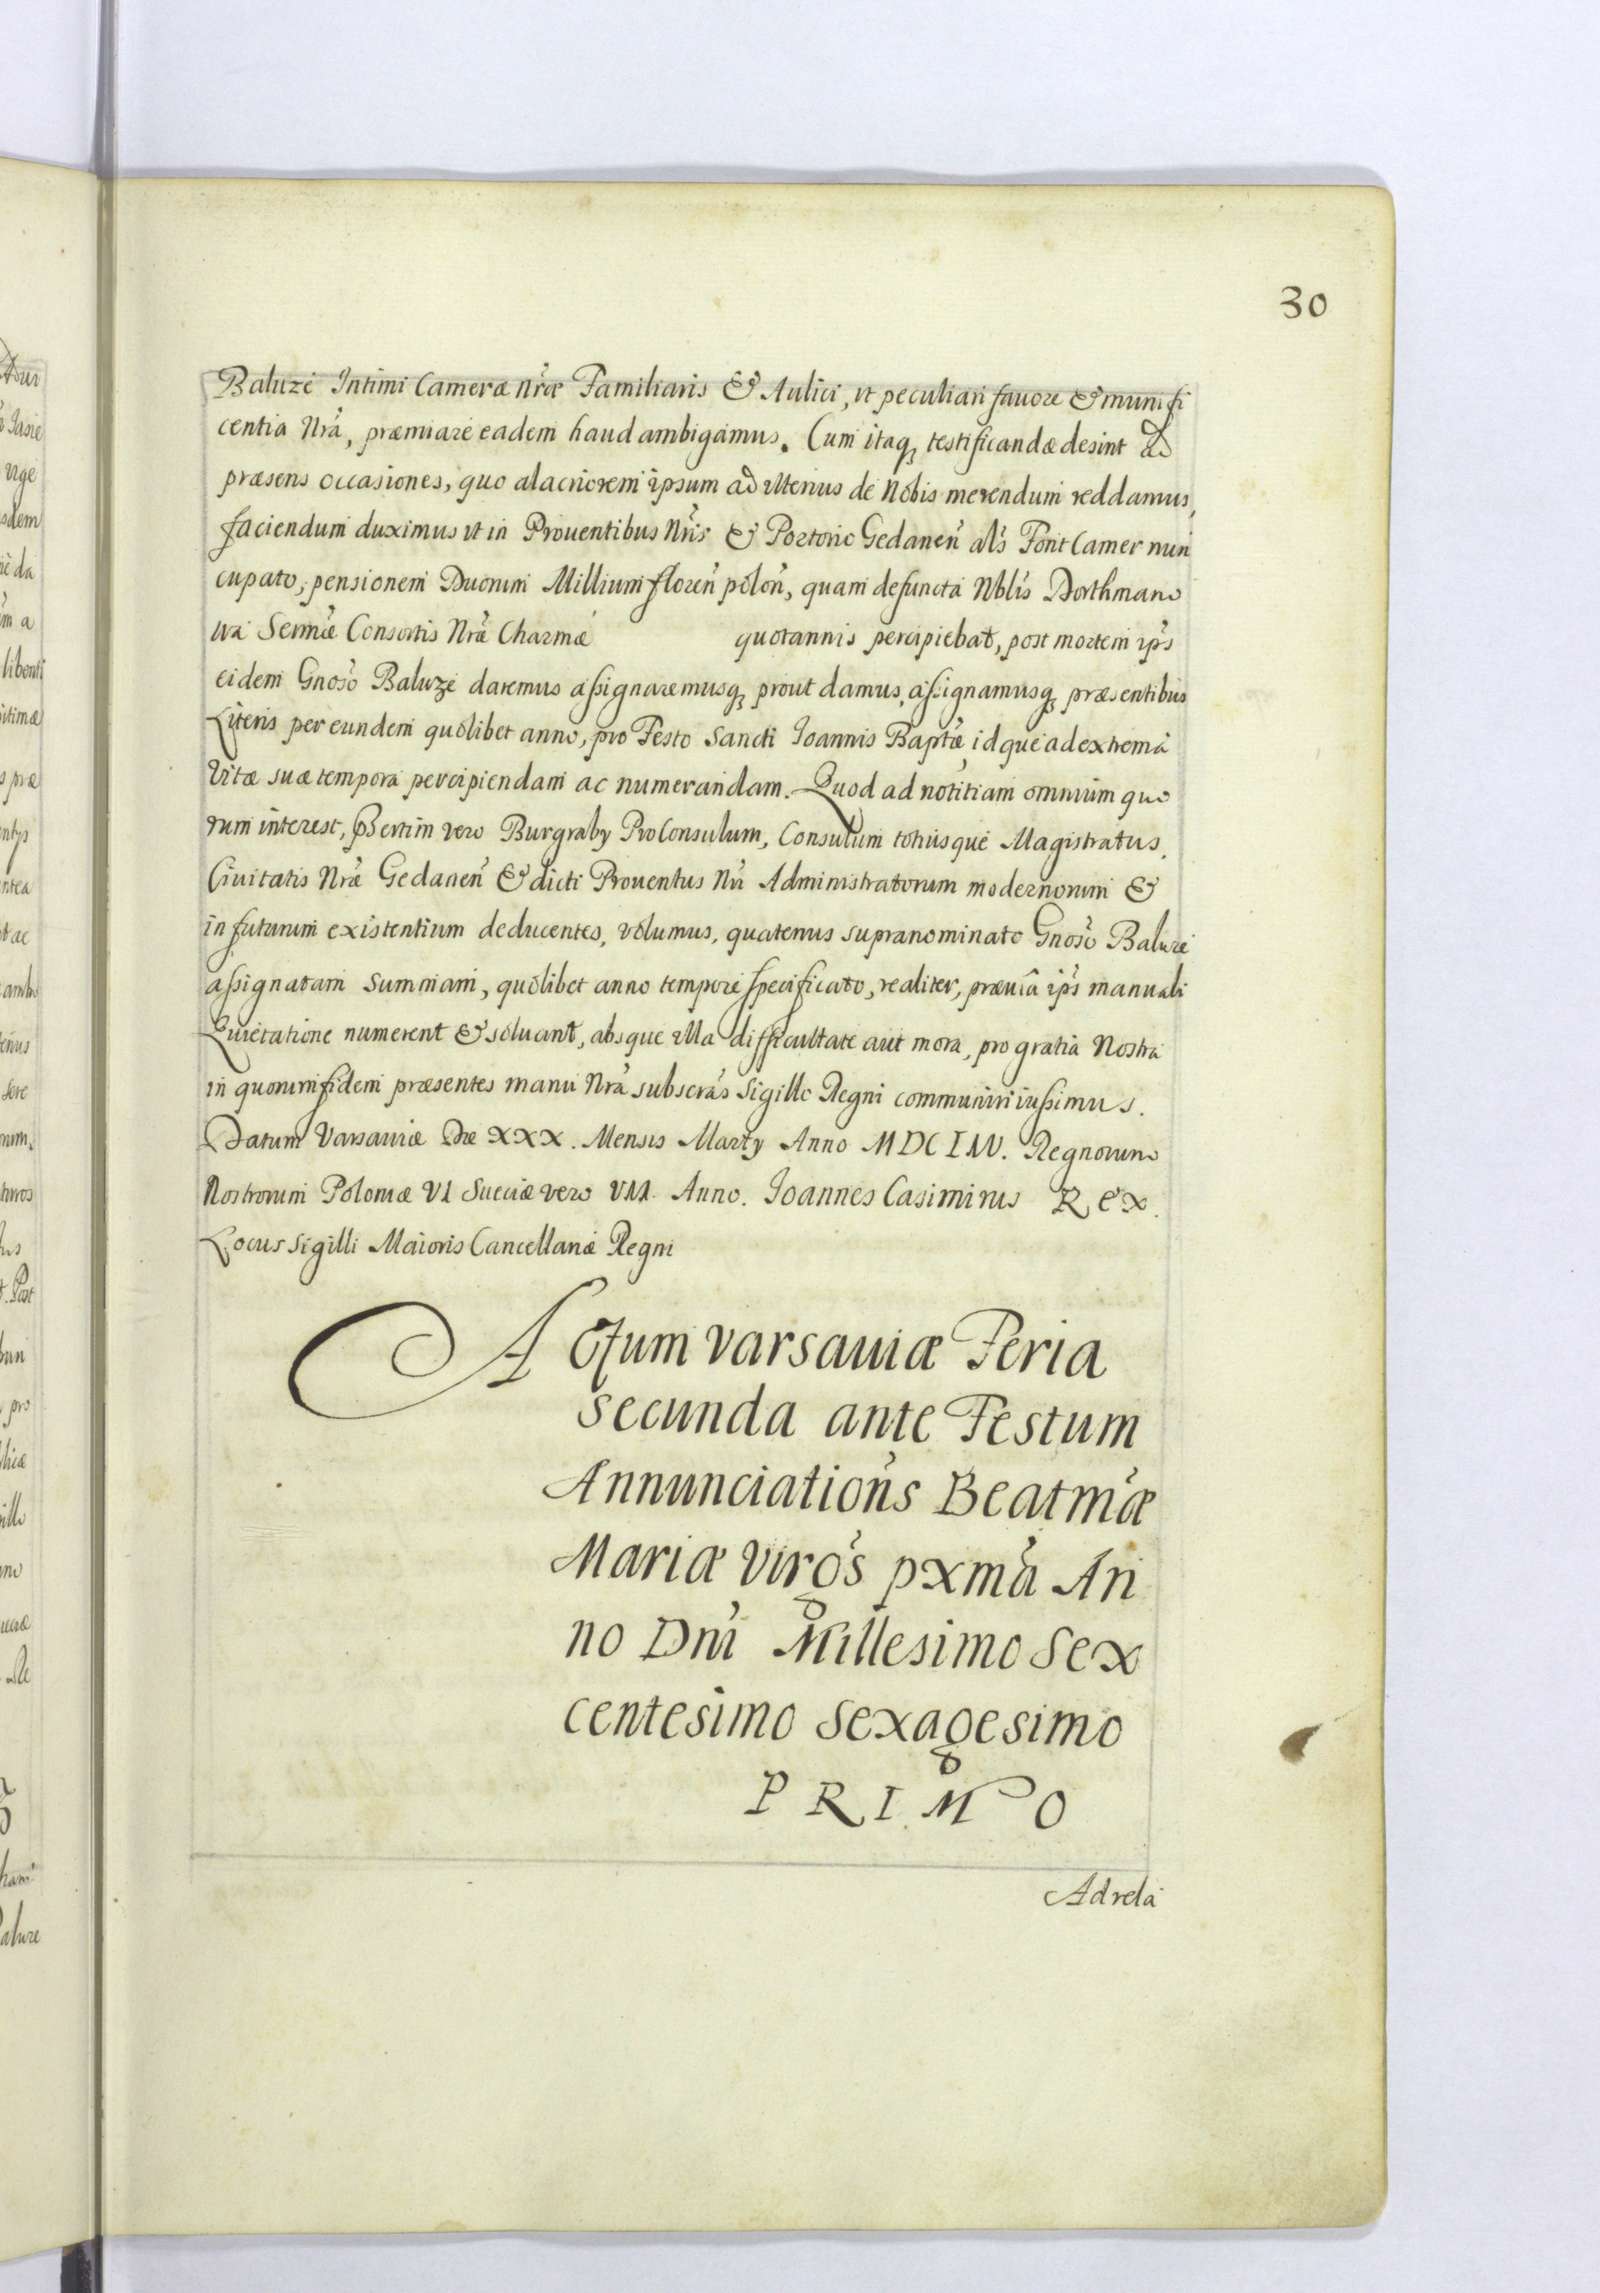 30
Baluze Intimi Cameræ nr̃æ Familiaris & Aulici, vt peculiari fauore & munifi
centia Nrã, præmiare eadem haud ambigamus. Cum itaq; testificandæ desint ad
præsens occasiones, quo alacriorem ipsum ad vlterius de Nobis merendum reddamus,
faciendum duximus vt in Prouentibus Nr̃is & Portorio Gedaneñ als Font Camer nun
cupato, pensionem Duorum Millium floreñ poloñ, quam defuncta Nblis Dorthmano
wa Sermæ Consortis Nræ Charmæ quotannis percipiebat, post mortem ips
eidem Gnoso Baluze daremus assignaremusq; prout damus, assignamusq; præsentibus
Literis per eundem quolibet anno, pro Festo Sancti Ioannis Baptæ, idque ad extrema
Vitæ suæ tempora percipiendam ac numerandam. Quod ad notitiam omnium quo
rum interest, psertim vero Burgraby ProConsulum, Consulum totiusque Magistratus,
Ciuitatis Nræ Gedaneñ & dicti Prouentus Nri Administratorum modernorum &
in futurum existentium deducentes, volumus, quatenus supranominato Gnoso Baluze
assignatam summam, quolibet anno tempore specificato, realiter, præuia ips manuali
Quietatione numerent & soluant, absque vlla difficultate aut mora, pro gratia Nostra
in quorum fidem præsentes manu Nra subscras Sigillo Regni communiri iussimus.
Datum Varsauiæ Die XXX. Mensis Marty Anno MDCLIV. Regnorum
Nostrorum Poloniæ VI Sueciæ vero VII. Anno. Ioannes Casimirus Rex.
Locus Sigilli Maioris Cancellariæ Regni
Actum Varsauiæ Feria
secunda ante Festum
Annunciations Beatmæ
Mariæ Virgs pxma An
no Dni Millesimo Sex
centesimo Sexagesimo
PRIMO
Ad rela